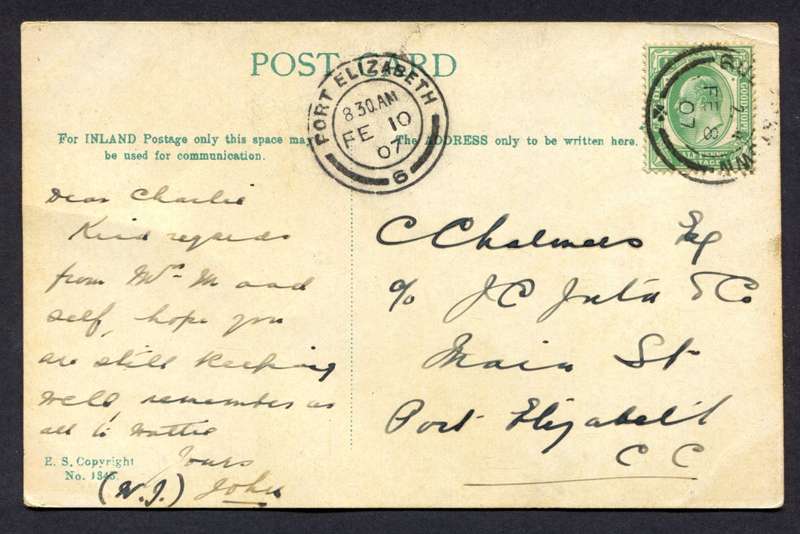 POST CARD
PORT ELIZABETH
8 30 AM
FE 10
07
6
FE 8
07
For INLAND Postage only this space may
be used for communication.
The ADDRESS only to be written here.
Dear Charlie
Kind regards
from Mrs M and
self, hope you
are still keeping
well, remember us
all to Wattie
Yours
(W.J.) John
E. S. Copyright
No. 1345.
C Chalmers Esq
c/o J C Juta & Co
Main St
Port Elizabeth
C C